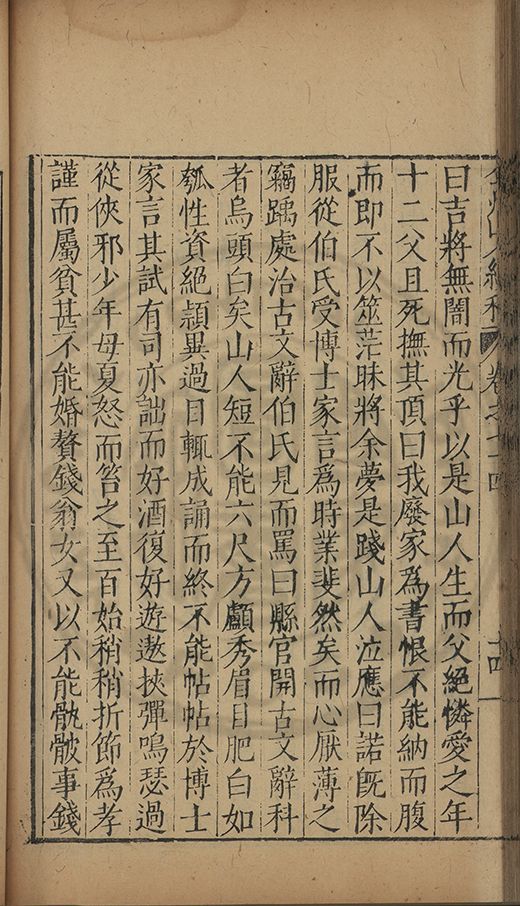 卷之
十四
曰吉將無闇而光乎以是山人生而父絕憐愛之年
十二父且死撫其頂曰我廢家爲書恨不能納而腹
而即不以筮茫昧將余夢是踐山人泣應曰諾既除
服從伯氏受博士家言爲時業斐然矣而心厭薄之
竊踽處治古文辭伯氏見而罵曰縣官開古文辭科
者烏頭白矣山人短不能六尺方顱秀眉目肥白如
瓠性資絕頴異過目輒成誦而終不能帖帖於博士
家言其試有司亦詘而好酒復好遊遨挾彈鳴瑟過
從俠邪少年母夏怒而笞之至百始稍稍折節爲孝
謹而屬貧甚不能婚贅錢翁女又以不能骫骳事錢